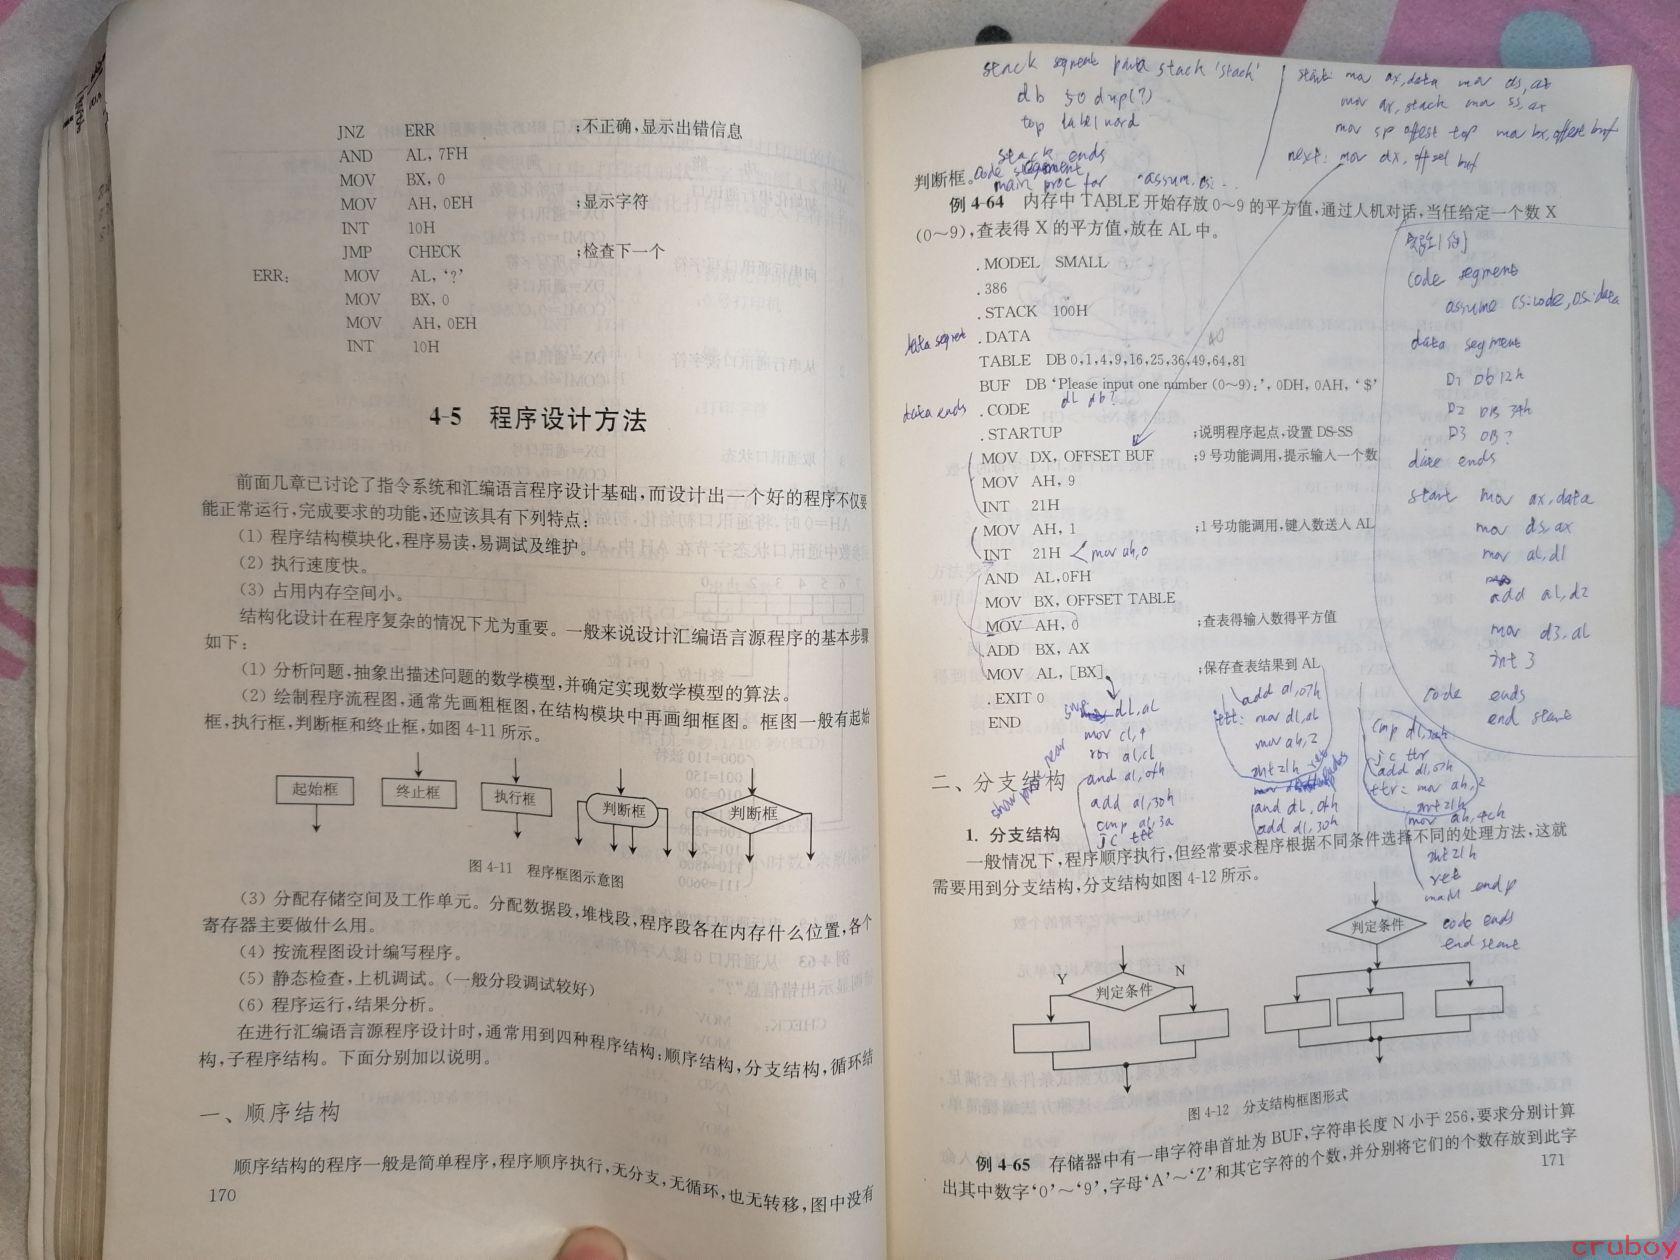 JNZ ERR ;不正确,显示出错信息
AND AL, 7FH
MOV BX, 0
MOV AH, 0EH ;显示字符
INT 10H
JMP CHECK ;检查下一个
ERR: MOV AL, '?'
MOV BX, 0
MOV AH, 0EH
INT 10H
4-5 程序设计方法
前面几章已讨论了指令系统和汇编语言程序设计基础,而设计出一个好的程序不仅要
能正常运行,完成要求的功能,还应该具有下列特点:
(1) 程序结构模块化,程序易读,易调试及维护。
(2) 执行速度快。
(3) 占用内存空间小。
结构化设计在程序复杂的情况下尤为重要。一般来说设计汇编语言源程序的基本步骤
如下:
(1) 分析问题,抽象出描述问题的数学模型,并确定实现数学模型的算法。
(2) 绘制程序流程图,通常先画粗框图,在结构模块中再画细框图。框图一般有起始
框,执行框,判断框和终止框,如图 4-11 所示。
起始框 终止框 执行框 判断框 判断框
图 4-11 程序框图示意图
(3) 分配存储空间及工作单元。分配数据段,堆栈段,程序段各在内存什么位置,各个
寄存器主要做什么用。
(4) 按流程图设计编写程序。
(5) 静态检查,上机调试。(一般分段调试较好)
(6) 程序运行,结果分析。
在进行汇编语言源程序设计时,通常用到四种程序结构:顺序结构,分支结构,循环结
构,子程序结构。下面分别加以说明。
一、顺序结构
顺序结构的程序一般是简单程序,程序顺序执行,无分支,无循环,也无转移,图中没有
170
stack segment para stack 'stack'
db 50 dup(?)
top label word
stack ends
code segment
main proc far assum
start: mov ax, data mov ds, ax
mov ax, stack mov ss, ax
mov sp offset top mov bx, offset buf
next: mov dx, offset buf
判断框。
例 4-64 内存中 TABLE 开始存放 0～9 的平方值,通过人机对话,当任给定一个数 X
(0～9),查表得 X 的平方值,放在 AL 中。
.MODEL SMALL
.386
.STACK 100H
data segment .DATA
TABLE DB 0,1,4,9,16,25,36,49,64,81
BUF DB 'Please input one number (0～9):', 0DH, 0AH, '$'
data ends .CODE
.STARTUP ;说明程序起点,设置 DS-SS
MOV DX, OFFSET BUF ;9 号功能调用,提示输入一个数
MOV AH, 9
INT 21H
MOV AH, 1 ;1 号功能调用,键入数送入 AL
INT 21H mov ah, 0
AND AL,0FH
MOV BX, OFFSET TABLE
MOV AH, 0 ;查表得输入数得平方值
ADD BX, AX
MOV AL, [BX] ;保存查表结果到 AL
.EXIT 0
END
code segment
assume cs:code, ds:data
data segment
D1 Db 12h
D2 DB 34h
D3 DB ?
ends
start mov ax, data
mov ds, ax
mov al, d1
add al, d2
mov d3, al
int 3
code ends
end start
dl, al
mov cl, 4
ror al, cl
and al, 0fh
add al, 30h
cmp al, 3a
jc ttt
add al, 07h
ttt: mov dl, al
mov ah, 2
int 21h
and dl, 0fh
add dl, 30h
cmp dl, 3ah
jc ttr
add dl, 07h
ttr: mov ah, 2
int 21h
mov ah, 4ch
int 21h
ret
main endp
code ends
end start
二、分支结构
1. 分支结构
一般情况下,程序顺序执行,但经常要求程序根据不同条件选择不同的处理方法,这就
需要用到分支结构,分支结构如图 4-12 所示。
判定条件
Y N
判定条件
图 4-12 分支结构框图形式
例 4-65 存储器中有一串字符串首址为 BUF,字符串长度 N 小于 256,要求分别计算
出其中数字'0'～'9',字母'A'～'Z'和其它字符的个数,并分别将它们的个数存放到此字
171
cruboy